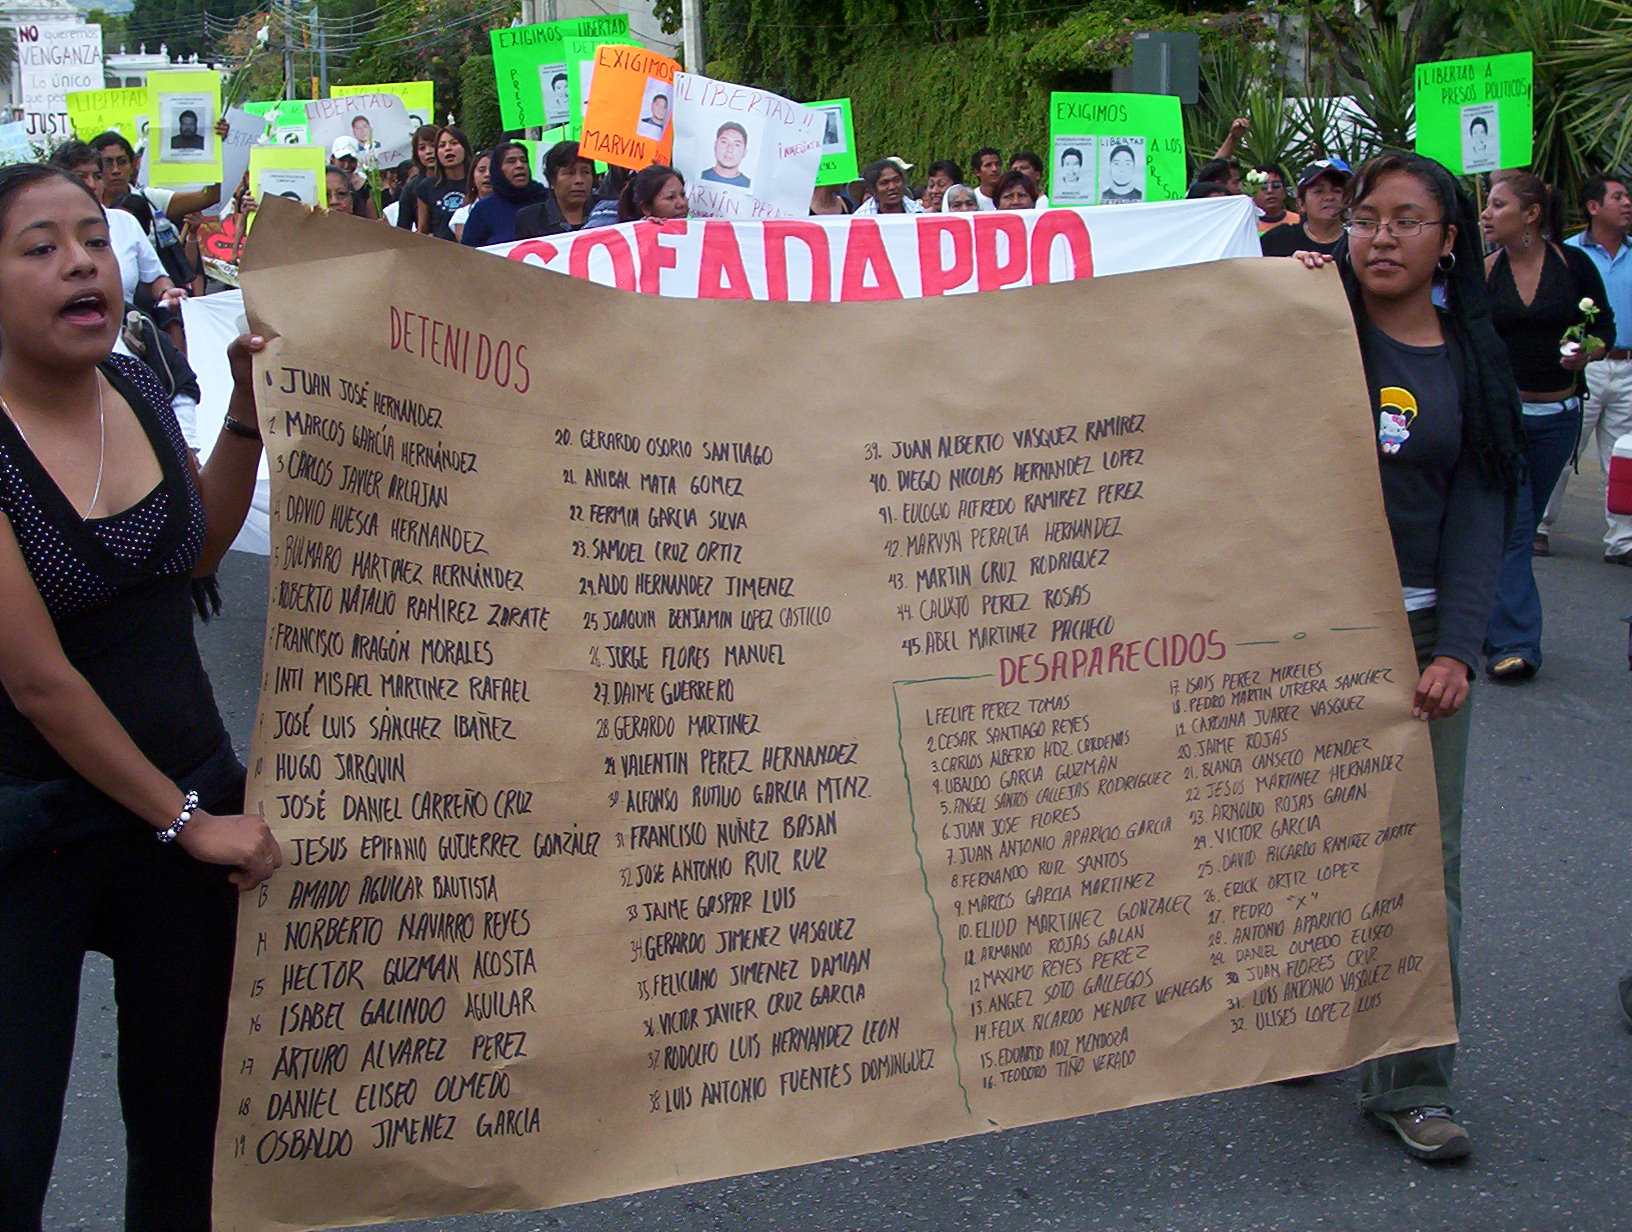 NO queremos
VENGANZA
Lo único
que pe
JUST
LIBERTAD
LIBERTAD
EXIGIMOS LIBERTAD
PRESOS
EXIGIMOS
MARVIN
¡¡LIBERTAD!!
MARVIN PERAL
EXIGIMOS
LIBERTAD
A LOS
PRESO
¡LIBERTAD A
PRESOS POLÍTICOS!
COFADAPPO
DETENIDOS
1 JUAN JOSÉ HERNANDEZ
2 MARCOS GARCÍA HERNÁNDEZ
3 CARLOS JAVIER ARLAJAN
4 DAVID HUESCA HERNANDEZ
5 BULMARO MARTINEZ HERNÁNDEZ
ROBERTO NATALIO RAMIREZ ZARATE
7 FRANCISCO ARAGÓN MORALES
8 INTI MISAEL MARTINEZ RAFAEL
9 JOSÉ LUIS SÁNCHEZ IBAÑEZ
10 HUGO JARQUIN
11 JOSÉ DANIEL CARREÑO CRUZ
JESUS EPIFANIO GUTIERREZ GONZÁLEZ
13 AMADO AGUILAR BAUTISTA
14 NORBERTO NAVARRO REYES
15 HECTOR GUZMAN ACOSTA
16 ISABEL GALINDO AGUILAR
17 ARTURO ALVAREZ PEREZ
18 DANIEL ELISEO OLMEDO
19 OSBALDO JIMENEZ GARCIA
20. GERARDO OSORIO SANTIAGO
21. ANIBAL MATA GOMEZ
22 FERMIN GARCIA SILVA
23. SAMUEL CRUZ ORTIZ
24. ALDO HERNANDEZ JIMENEZ
25 JOAQUIN BENJAMIN LOPEZ CASTILLO
26. JORGE FLORES MANUEL
27. DAIME GUERRERO
28. GERARDO MARTINEZ
29. VALENTIN PEREZ HERNANDEZ
30. ALFONSO RUTILIO GARCIA MTNZ.
31 FRANCISCO NUÑEZ BASAN
32 JOSE ANTONIO RUIZ RUIZ
33 JAIME GASPAR LUIS
34. GERARDO JIMENEZ VASQUEZ
35. FELICIANO JIMENEZ DAMIAN
36. VICTOR JAVIER CRUZ GARCIA
37 RODOLFO LUIS HERNANDEZ LEON
38. LUIS ANTONIO FUENTES DOMINGUEZ
39. JUAN ALBERTO VASQUEZ RAMIREZ
40. DIEGO NICOLAS HERNANDEZ LOPEZ
41. EULOGIO ALFREDO RAMIREZ PEREZ
42. MARVYN PERALTA HERNANDEZ
43. MARTIN CRUZ RODRIGUEZ
44. CALIXTO PEREZ ROSAS
45. ABEL MARTINEZ PACHECO
DESAPARECIDOS
1. FELIPE PEREZ TOMAS
2. CESAR SANTIAGO REYES
3. CARLOS ALBERTO HDZ CARDENAS
4. UBALDO GARCIA GUZMAN
5. ANGEL SANTOS CALLEJAS RODRIGUEZ
6. JUAN JOSE FLORES
7. JUAN ANTONIO APARICIO GARCIA
8. FERNANDO RUIZ SANTOS
9. MARCOS GARCIA MARTINEZ
10. ELIUD MARTINEZ GONZALEZ
11. ARMANDO ROJAS GALAN
12 MAXIMO REYES PEREZ
13. ANGEL SOTO GALLEGOS
14. FELIX RICARDO MENDEZ VENEGAS
15. EDUARDO HDZ MENDOZA
16. TEODORO TIÑO VERADO
17. ISAIS PEREZ MIRELES
18. PEDRO MARTIN UTRERA SANCHEZ
19. CAROLINA JUAREZ VASQUEZ
20. JAIME ROJAS
21. BLANCA CANSECO MENDEZ
22 JESUS MARTINEZ HERNANDEZ
23. ARNOLDO ROJAS GALAN
24. VICTOR GARCIA
25. DAVID RICARDO RAMIREZ ZARATE
26. ERICK ORTIZ LOPEZ
27. PEDRO "X"
28. ANTONIO APARICIO GARCIA
29. DANIEL OLMEDO ELISEO
30. JUAN FLORES CRUZ
31. LUIS ANTONIO VASQUEZ HDZ
32. ULISES LOPEZ LUIS